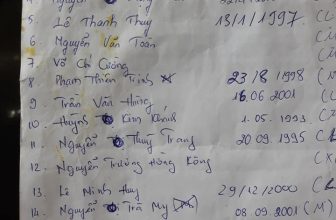 5. Lê Thanh Thuy 13/1/1997. (
6. Nguyễn Văn Toan
7. Võ Chí Cường (
8. Phạm Thiên Trinh 23/8/1998 (
9. Trần Văn Thông 16.06 2001 (
10. Huỳnh Kim Khánh 1.05.1993. (
11. Nguyễn Thuỳ Trang 20.09.1995 (
12. Nguyễn Trường Hồng Kông
13. Lê Minh Huy 29/12/2000 (
14. Nguyễn Trà My 08.09.2001 (M)